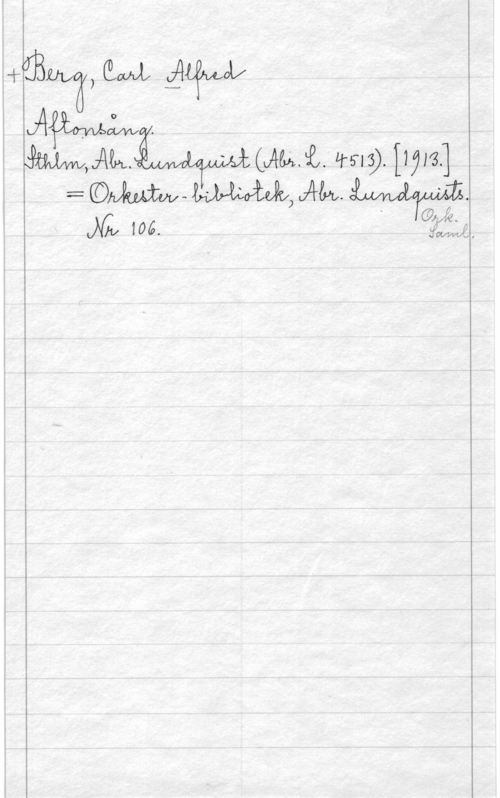 +Berg, Carl Alfred
Aftonsång.
Sthlm, Abr. Lundquist (Abr. L. 4513). [1913.]
= Orkester-bibliotek, Abr. Lundquists.
Nr 106.
Ork.
Saml.